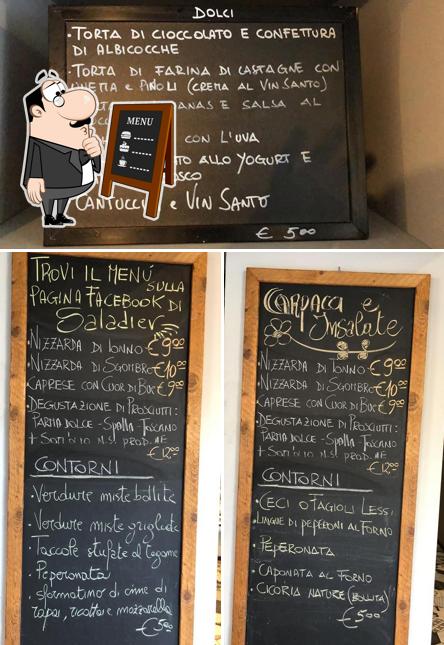 DOLCI
• TORTA DI CIOCCOLATO E CONFETTURA
DI ALBICOCCHE
• TORTA DI FARINA DI CASTAGNE CON
E PINOLI (CREMA AL VIN SANTO)
E SALSA AL
CON L'UVA
ALLO YOGURT E
CANTUCCI e VIN SANTO
€ 5,00
MENU
TROVI IL MENÚ
SULLA
PAGINA FACEBOOK DI
Saladier
• NIZZARDA DI TONNO € 9,00
• NIZZARDA DI SGOMBRO € 10,00
• CAPRESE CON CUOR DI BUE € 9,00
• DEGUSTAZIONE DI PROSCIUTTI:
PARMA DOLCE - SPALLA - TOSCANO
€ 12,00
CONTORNI
• Verdure miste bollite
• Verdure miste grigliate
• Taccole stufate al tegame
• Peperonata
• sformatino di cime di
rapa, ricotta e mozzarella
€ 5,00
CARPACCI e
Insalate
• NIZZARDA DI TONNO € 9,00
• NIZZARDA DI SGOMBRO € 10,00
• CAPRESE CON CUOR DI BUE € 9,00
• DEGUSTAZIONE DI PROSCIUTTI:
PARMA DOLCE - SPALLA - TOSCANO
€ 12,00
CONTORNI
• CECI O FAGIOLI LESSI
• LINGUE DI PEPERONI AL FORNO
• PEPERONATA
• CAPONATA AL FORNO
• CICORIA NATURE (BOLLITA)
€ 5,00